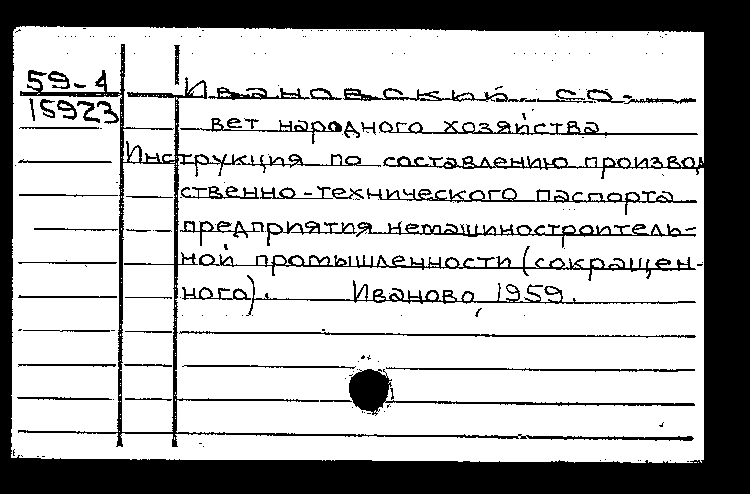 59-4
15923
Ивановский со-
вет народного хозяйства.
Инструкция по составлению производ
ственно-технического паспорта
предприятия немашиностроитель-
ной промышленности (сокращен-
ного). Иваново, 1959.